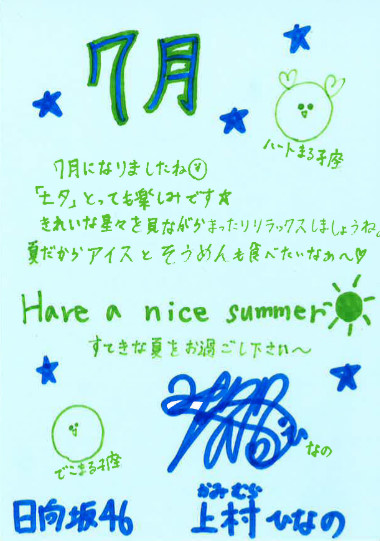 7月
ハートまる子座
7月になりましたね
「七夕」とっても楽しみです
きれいな星々を見ながらまったりリラックスしましょうね。
夏だからアイスとそうめんも食べたいなぁ〜♡
Have a nice summer
すてきな夏をお過ごし下さい〜
でこまる子座
ひなの
日向坂46
かみむら
上村ひなの